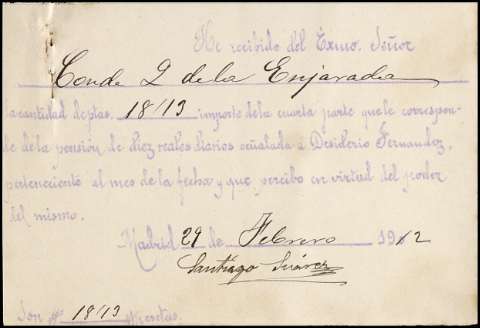 He recibido del Exmo. Señor
Conde D de la Enjarada
la cantidad de ptas. 18'13 importe de la cuarta parte que le correspon-
de de la pensión de diez reales diarios señalada á Desiderio Fernandez,
perteneciente al mes de la fecha y que percibo en virtud del poder
del mismo.
Madrid 29 de Febrero 1912
Santiago Suárez
Son ptas 18'13 Pesetas.